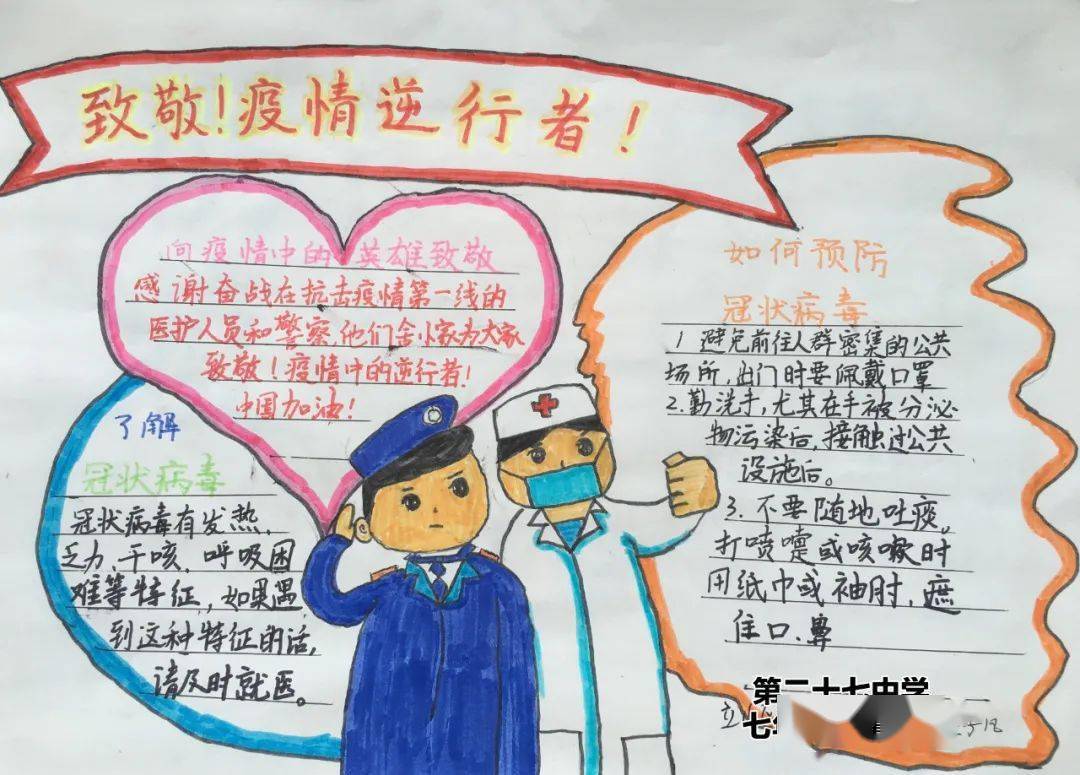 致敬!疫情逆行者!
向疫情中的英雄致敬
感谢奋战在抗击疫情第一线的
医护人员和警察,他们舍小家为大家
致敬!疫情中的逆行者!
中国加油!
了解
冠状病毒
冠状病毒有发热,
乏力、干咳、呼吸困
难等特征,如果遇
到这种特征的话,
请及时就医。
如何预防
冠状病毒
1 避免前往人群密集的公共
场所,出门时要佩戴口罩
2.勤洗手,尤其在手被分泌
物污染后,接触过公共
设施后。
3.不要随地吐痰。
打喷嚏或咳嗽时
用纸巾或袖肘,遮
住口、鼻
第二十七中学
七